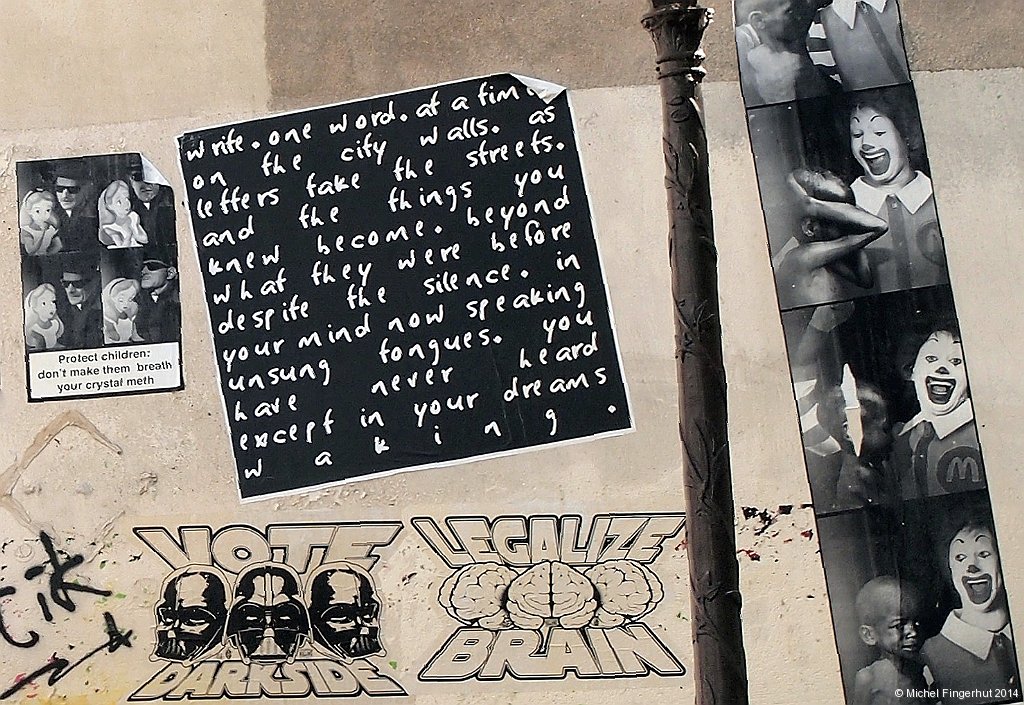 write. one word. at a time
on the city walls. as
letters take the streets.
and the things you
knew become. beyond
what they were before
despite the silence. in
your mind now speaking
unsung tongues. you
have never heard
except in your dreams
w a k i n g .
Protect children:
don't make them breath
your crystal meth
VOTE
DARKSIDE
LEGALIZE
BRAIN
© Michel Fingerhut 2014